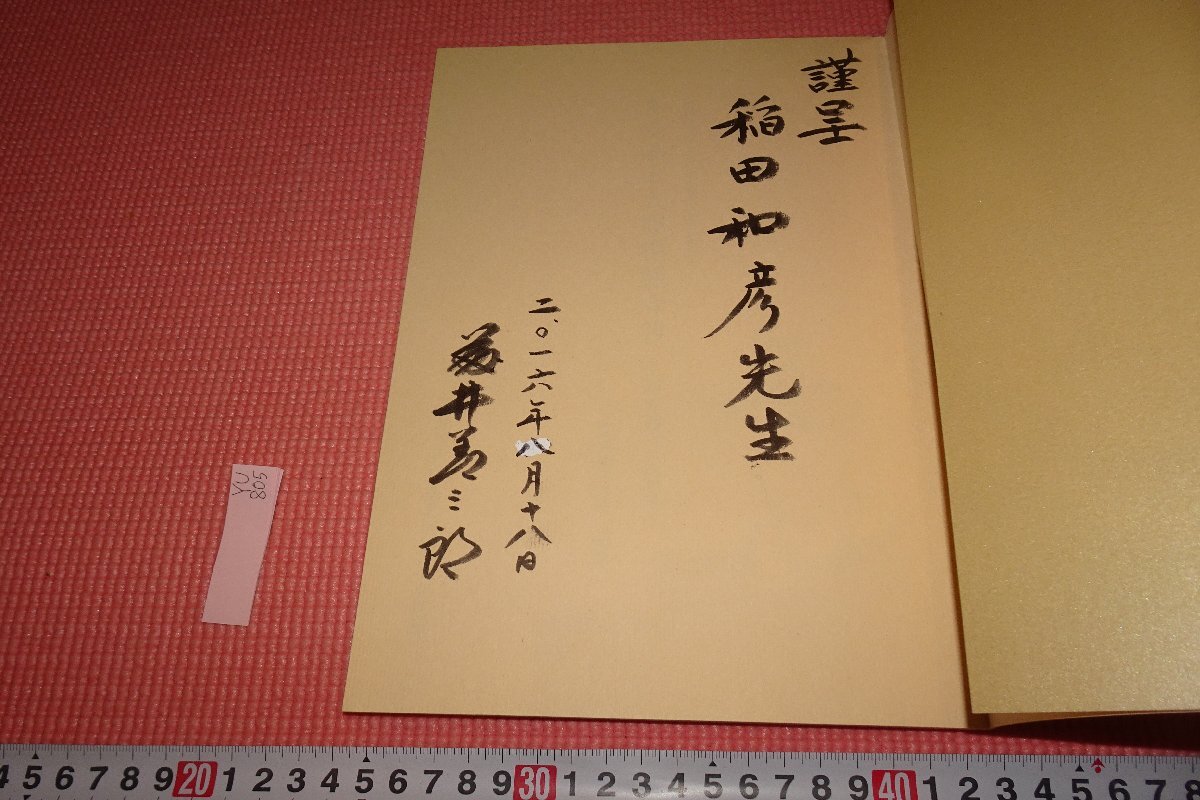 謹呈
稲田和彦先生
二〇一六年八月十八日
藤井善三郎
YU
805
4 5 6 7 8 9 20 1 2 3 4 5 6 7 8 9 30 1 2 3 4 5 6 7 8 9 40 1 2 3 4 5 6 7 8